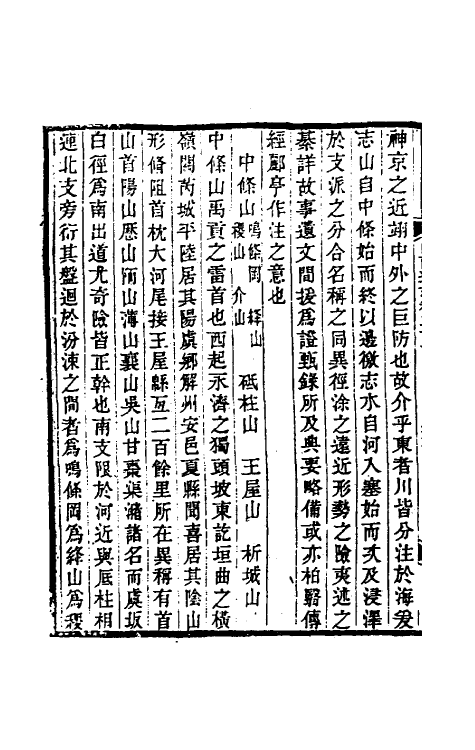 神京之近翊中外之巨防也故介乎東者川皆分注於海爰
志山自中條始而終以邊徼志水自河入塞始而次及浸澤
於支派之分合名稱之同異徑涂之遠近形勢之險夷述之
綦詳故事遺文間援爲證甄錄所及典要略備或亦柏翳傳
經酈亭作注之意也
中條山 鳴條岡 絳山 稷山 介山 砥柱山 王屋山 析城山
中條山禹貢之雷首也西起永濟之獨頭坡東訖垣曲之橫
嶺關芮城平陸居其陽虞鄉解州安邑夏縣聞喜居其陰山
形脩阻首枕大河尾接王屋緜亙二百餘里所在異稱有首
山首陽山歷山陑山薄山襄山吳山甘棗渠潴諸名而虞坂
白徑爲南出道尤奇險皆正幹也南支限於河近與底柱相
連北支旁衍其盤迴於汾涑之間者爲鳴條岡爲絳山爲稷